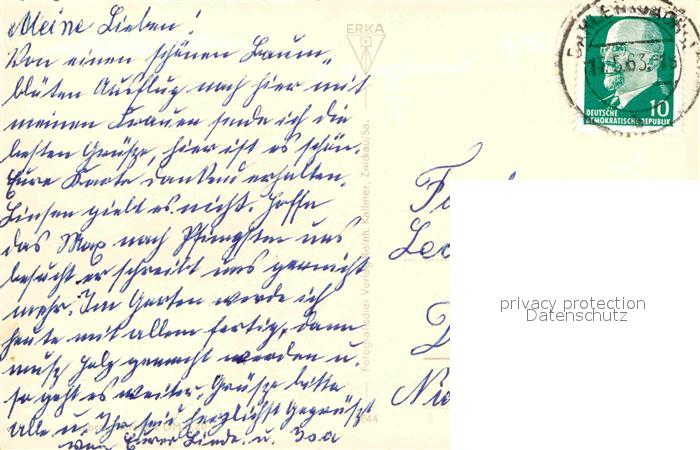 Meine Lieben!
Von einen schönen Baum-
blüten Ausflug nach hier mit
meinen Frauen sende ich die
besten Grüße, hier ist es schön.
Eure Karte dankend erhalten.
Linsen giebt es nicht. Hoffe
das Max nach Pfingsten uns
besucht er schreibt uns garnicht
mehr. Im Garten werde ich
heute mit allem fertig, dann
muß Holz gemacht werden u.
so geht es weiter. Grüße bitte
alle u. Ihr seid herzlichst Gegrüßt
von Eurer Linde. u.
ERKA
Fotografischer Verlag Reinh. Kallmer, Zwickau/Sa.
17.5.63.-18
10
DEUTSCHE
DEMOKRATISCHE REPUBLIK
privacy protection
Datenschutz